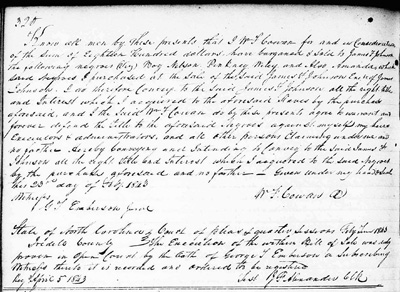 Know all men by these presents that I Wm F. Cowan for and in Consideration
of the Sum of Eighteen Hundred dollars have bargained & sold to James F Johnson
the following negroes Boy Nelson Pinkney Wiley and Also Amanda which
said Negroes I purchased at the Sale of the Said James F Johnson of James
Johnson. I do therefore Convey to the Said James F Johnson all the right title
and Interest which I acquired to the aforesaid slaves by the purchase
aforesaid, and I the Said Wm F. Cowan do by this presents agree to warrant and
forever defend the title to the aforesaid Negroes against myself my heirs
Executors & administrators, and all other persons Claiming under me and
no further. Hereby Conveying and Intending to Convey to the Said James F
Johnson all the right title and Interest which I acquired to the Said Negroes
by the purchases aforesaid and no further — Given under my hand & seal
this 23rd day of 1843
Witness Wm F. Cowan
G. F. Emberson
State of North Carolina Court of pleas & quarter Sessions 1843
Iredell County The Execution of the within Bill of Sale was duly
proven in Open Court by the Oath of George F Emberson a Subscribing
Witness thereto it is recorded and ordered to be registered
April 5 1843 Test Alexander Clk